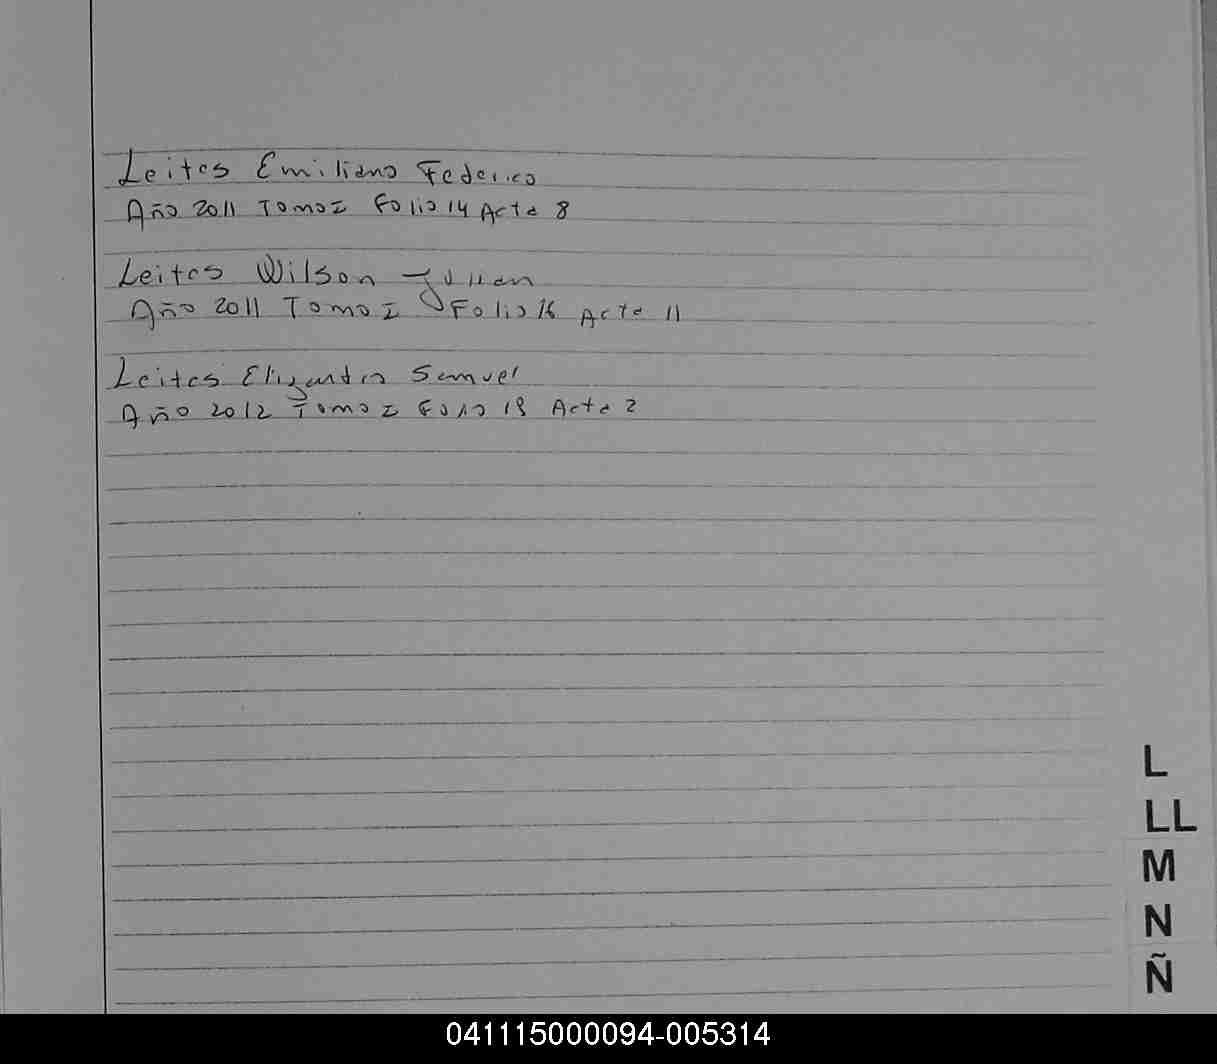 Leites Emiliano Federico
Año 2011 Tomo I Folio 14 Acta 8
Leites Wilson Julian
Año 2011 Tomo I Folio 16 Acta 11
Leites Elizandro Samuel
Año 2012 Tomo I Folio Acta 2
L
LL
M
N
Ñ
041115000094-005314